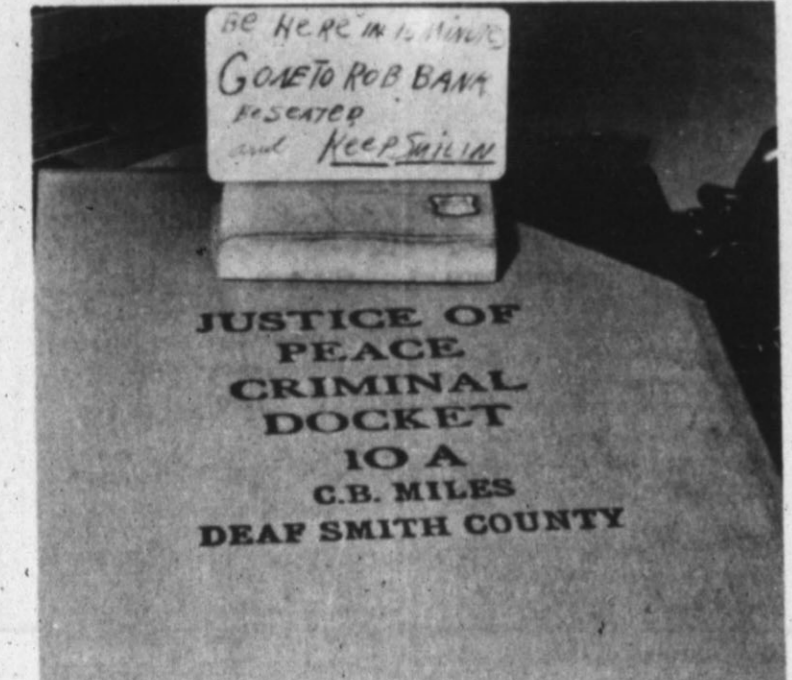 Be HeRe IN 15 MiNUTES
GONE TO ROB BANK
BE SEATED
and KEEP SMILIN
JUSTICE OF
PEACE
CRIMINAL
DOCKET
10 A
C.B. MILES
DEAF SMITH COUNTY